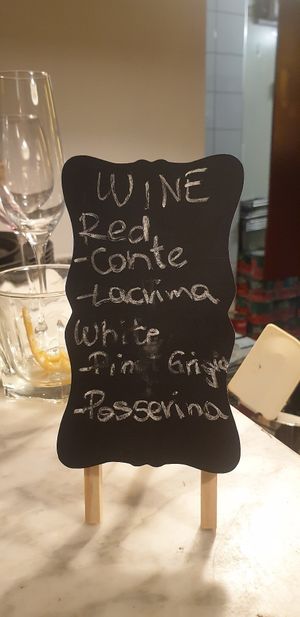 WINE
Red
-Conte
-Lacrima
White
-Pinot Grigio
-Passerina